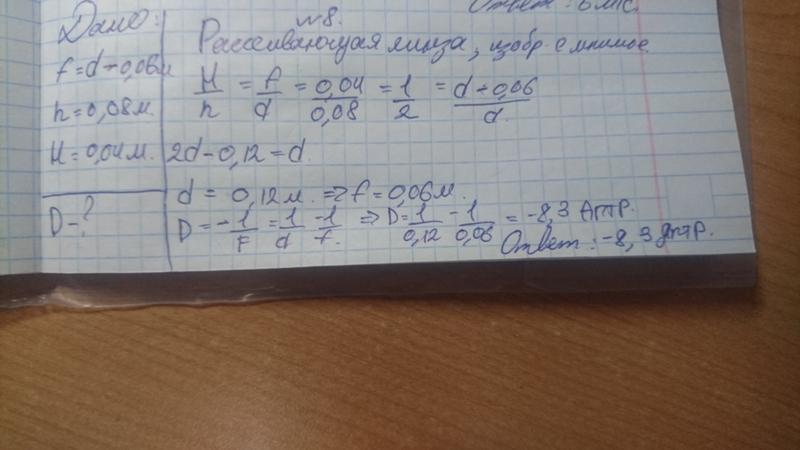 Ответ: 6 м/с.
№8.
Дано:
f=d-0,06м
h=0,08м.
H=0,04м.
D-?
Рассеивающая линза, изобр-е мнимое.
H/h = f/d = 0,04/0,08 = 1/2 = d-0,06/d.
2d-0,12=d.
d = 0,12м. => f = 0,06м.
D=-1/F=1/d-1/f. => D=1/0,12-1/0,06 = -8,3 дптр.
Ответ: -8,3 дптр.